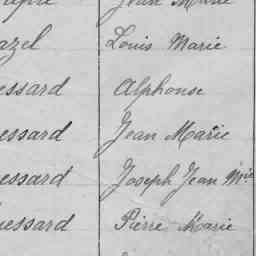 Jean Marie
azel Louis Marie
essard Alphonse
essard Jean Marie
essard Joseph Jean Mie
essard Pierre Marie